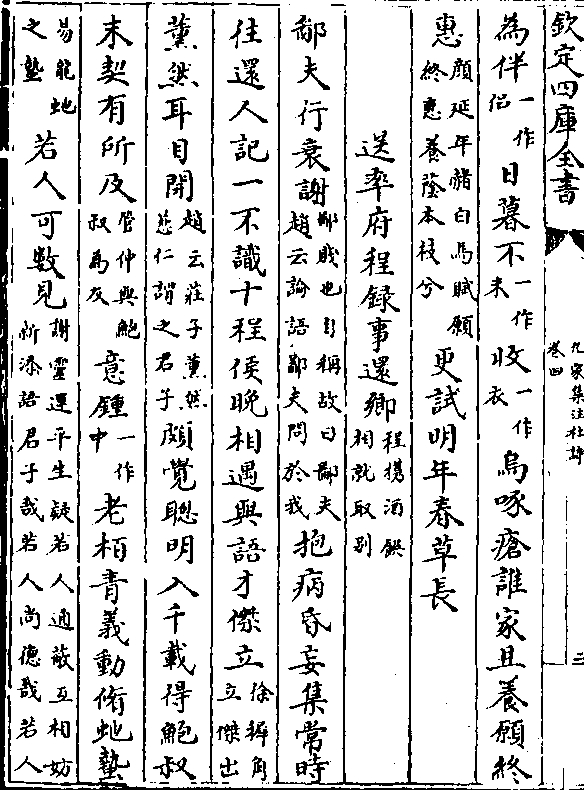 欽定四庫全書 九家集注杜詩 卷四
為伴一作侶日暮不一作未收一作衣烏啄瘡誰家且養願終
惠顔延年赭白馬賦願終惠養蔭本枝兮更試明年春草長
送率府程録事還鄉程攜酒饌相就取别
鄙夫行衰謝鄙賤也自稱故曰鄙夫趙云論語鄙夫問於我抱病昏妄集常時
往還人記一不識十程侯晚相遇與語才傑立徐穉角立傑出
薰然耳目開趙云莊子薰然慈仁謂之君子頗覺聰明入千載得鮑叔
末契有所及管仲與鮑叔為友意鍾一作中老柏青義動脩蛇蟄
易龍蛇之蟄若人可數見謝靈運平生疑若人通蔽互相妨新添語君子哉若人尚德哉若人